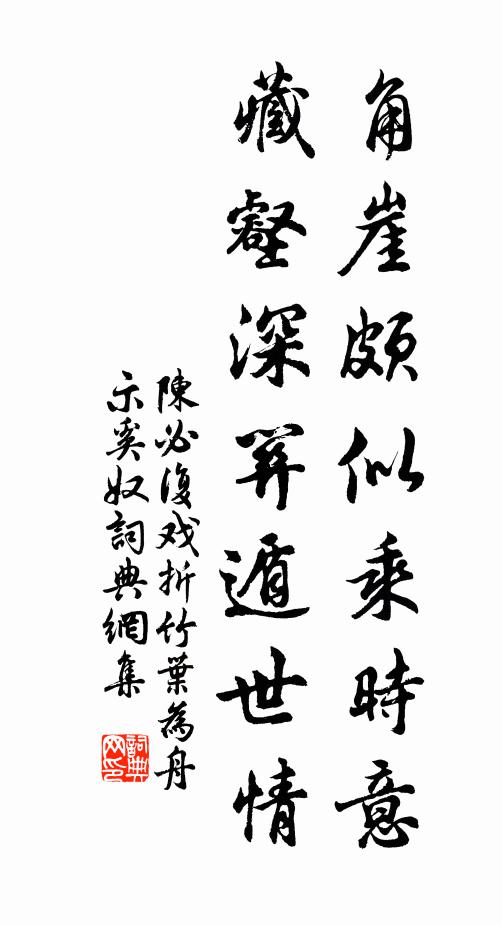 角崖頗似乘時意
藏壑深遁世情
陳必復戏折竹葉為舟
示奚奴詞典網集
詞典
网印